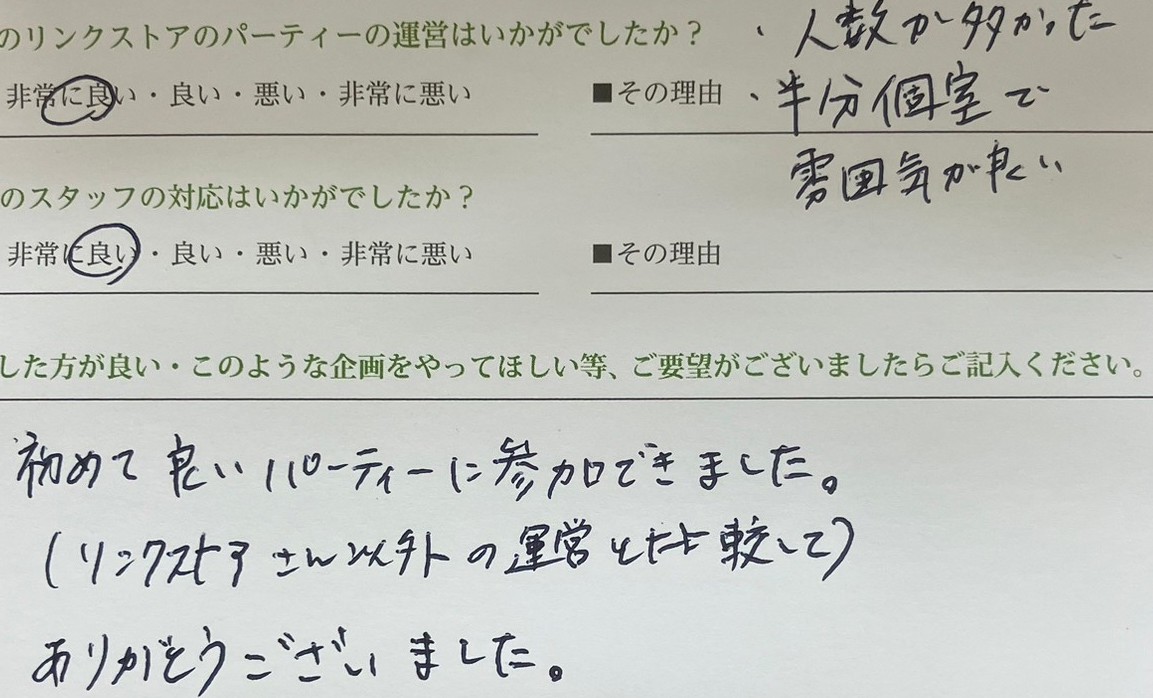 のリンクストアのパーティーの運営はいかがでしたか？
・人数が多かった
非常に良い・良い・悪い・非常に悪い
■その理由 ・半分個室で
雰囲気が良い
のスタッフの対応はいかがでしたか？
非常に良い・良い・悪い・非常に悪い
■その理由
した方が良い・このような企画をやってほしい等、ご要望がございましたらご記入ください。
初めて良いパーティーに参加できました。
(リンクストアさん以外の運営と比較して)
ありがとうございました。